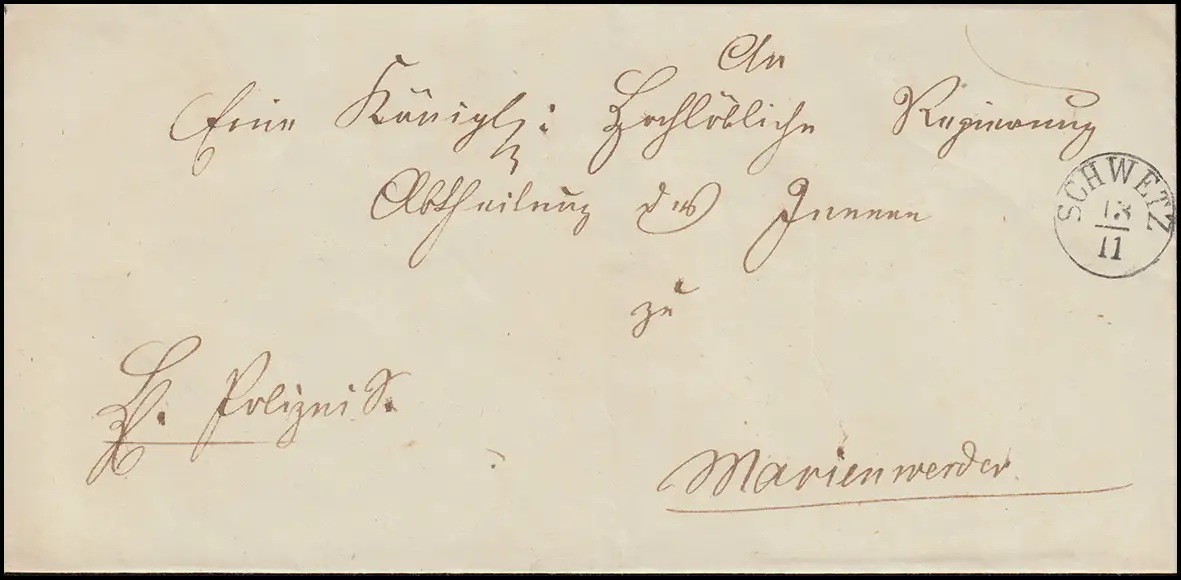 An
Eine Königl: Hochlöbliche Regierung
Abtheilung des Innern
zu
Marienwerder
Polizei S.
SCHWETZ
13
11